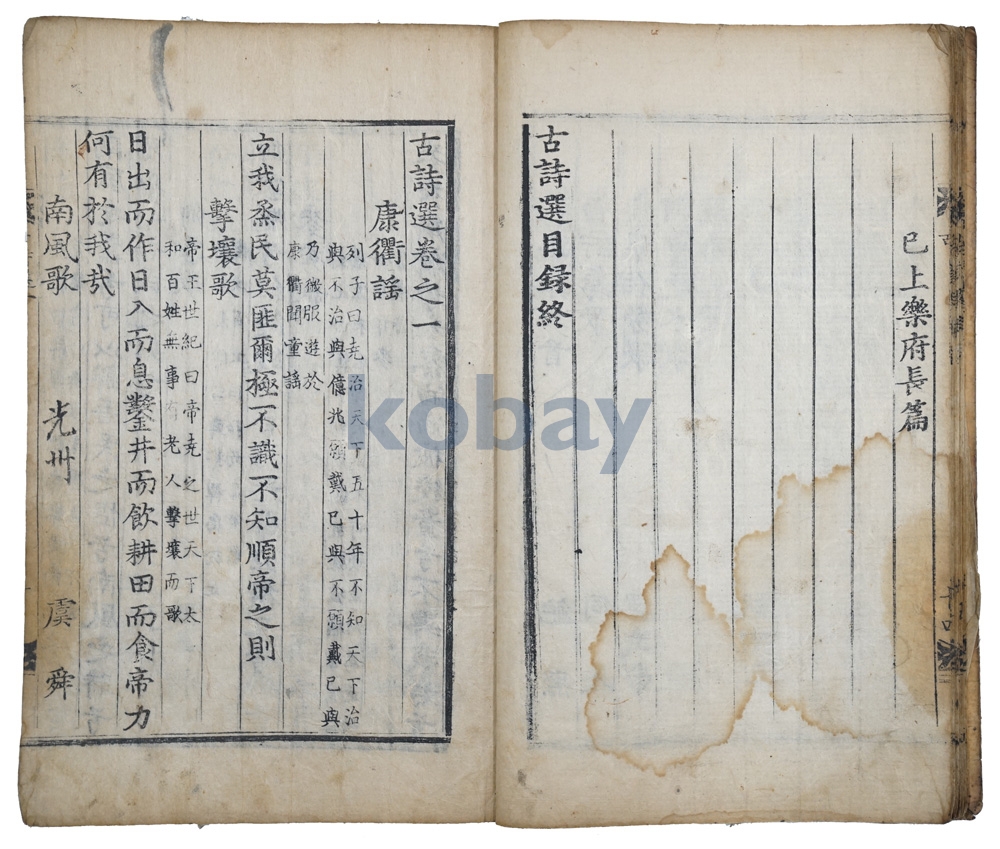 已上樂府長篇
古詩選目録終
古詩選卷之一
康衢謠
列子曰堯治天下五十年不知天下治
與不治與億兆願戴己與不願戴己與
乃微服遊於
康衢聞童謠
立我烝民莫匪爾極不識不知順帝之則
擊壤歌
帝王世紀曰帝堯之世天下太
和百姓無事有老人擊壤而歌
日出而作日入而息鑿井而飲耕田而食帝力
何有於我哉
南風歌 光州 虞舜
kobay